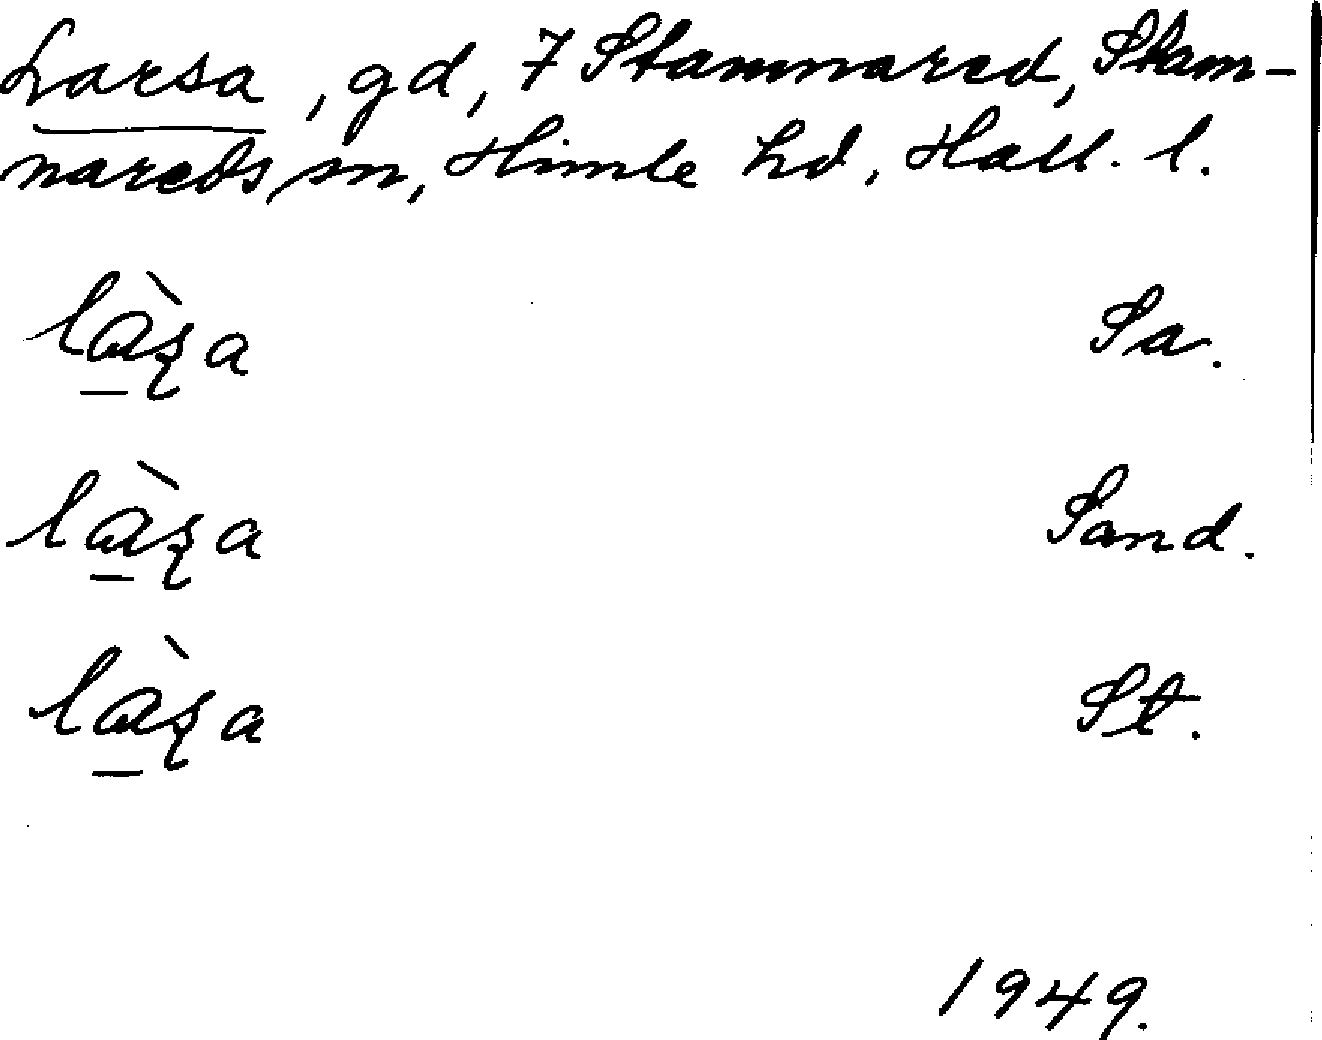 Larsa, gd, 7 Stamnared, Stam-
nareds sn, Himle hd, Hall. l.
lɑ̀ʂa Sa.
lɑ̀ʂa Sand.
lɑ̀ʂa St.
1949.